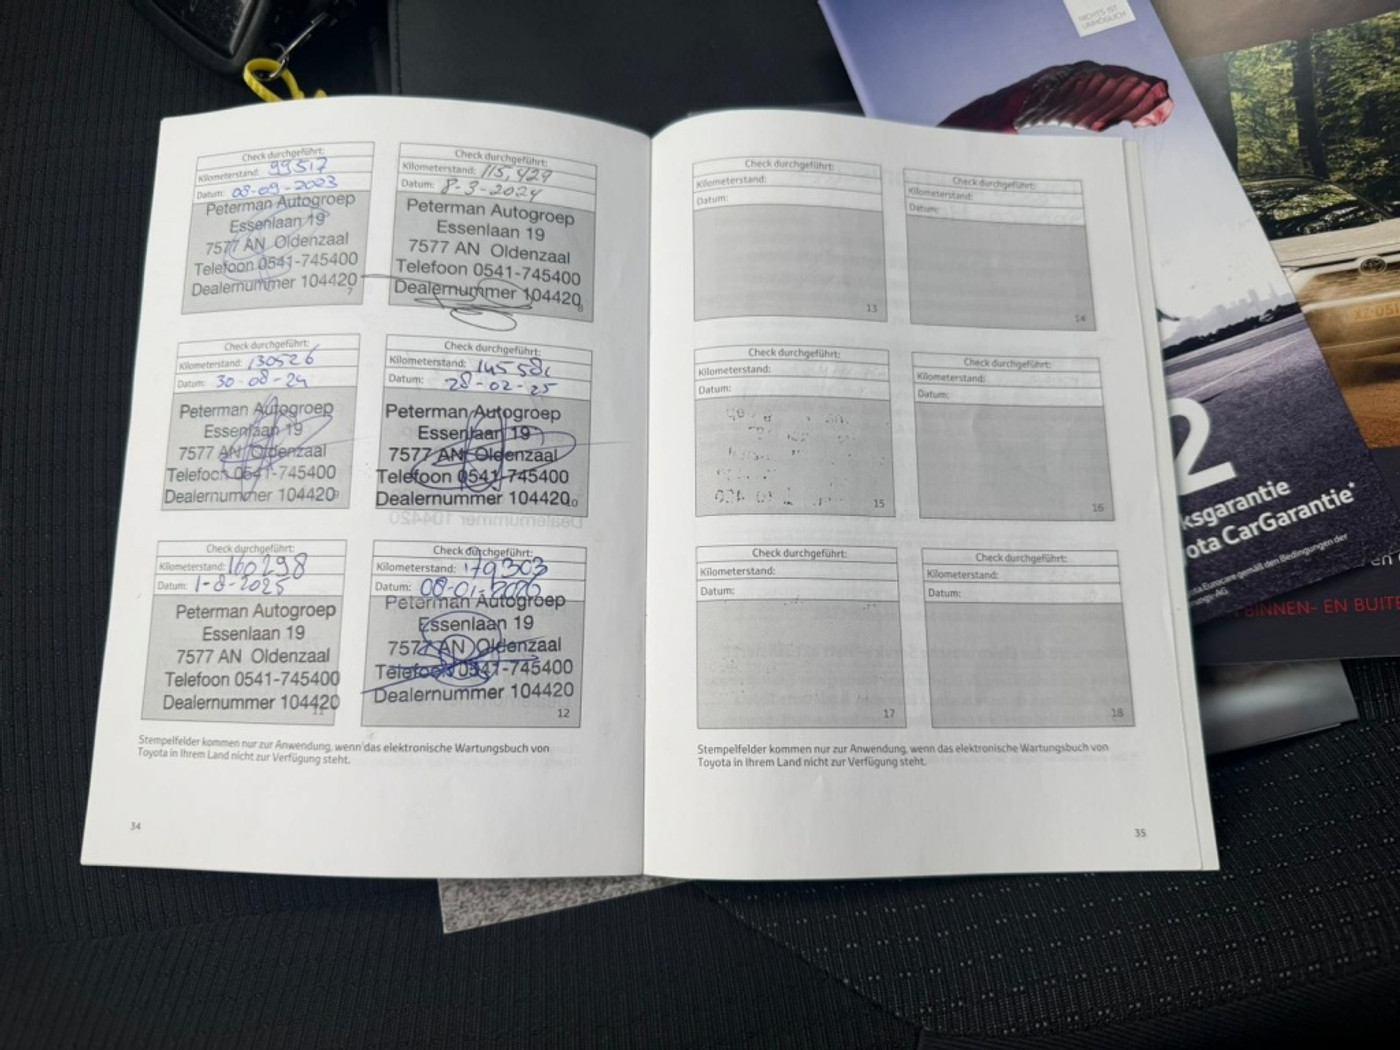 Check durchgeführt:
Kilometerstand: 99517
Datum: 08-09-2023
Peterman Autogroep
Essenlaan 19
7577 AN Oldenzaal
Telefoon 0541-745400
Dealernummer 104420
7
Check durchgeführt:
Kilometerstand: 115.429
Datum: 8-3-2024
Peterman Autogroep
Essenlaan 19
7577 AN Oldenzaal
Telefoon 0541-745400
Dealernummer 104420
8
Check durchgeführt:
Kilometerstand: 130526
Datum: 30-08-24
Peterman Autogroep
Essenlaan 19
7577 AN Oldenzaal
Telefoon 0541-745400
Dealernummer 104420
9
Check durchgeführt:
Kilometerstand:
Datum: 28-02-25
Peterman Autogroep
Essenlaan 19
7577 AN Oldenzaal
Telefoon 0541-745400
Dealernummer 104420
10
Check durchgeführt:
Kilometerstand: 160298
Datum: 1-8-2025
Peterman Autogroep
Essenlaan 19
7577 AN Oldenzaal
Telefoon 0541-745400
Dealernummer 104420
11
Check durchgeführt:
Kilometerstand: 179303
Datum: 08-01-2026
Peterman Autogroep
Essenlaan 19
7577 AN Oldenzaal
Telefoon 0541-745400
Dealernummer 104420
12
Stempelfelder kommen nur zur Anwendung, wenn das elektronische Wartungsbuch von
Toyota in Ihrem Land nicht zur Verfügung steht.
34
Check durchgeführt:
Kilometerstand:
Datum:
13
Check durchgeführt:
Kilometerstand:
Datum:
14
Check durchgeführt:
Kilometerstand:
Datum:
15
Check durchgeführt:
Kilometerstand:
Datum:
16
Check durchgeführt:
Kilometerstand:
Datum:
17
Check durchgeführt:
Kilometerstand:
Datum:
18
Stempelfelder kommen nur zur Anwendung, wenn das elektronische Wartungsbuch von
Toyota in Ihrem Land nicht zur Verfügung steht.
35
NICHTS IST
UNMÖGLICH
2
ksgarantie
ota CarGarantie*
gemäß den Bedingungen der
BINNEN- EN BUITE